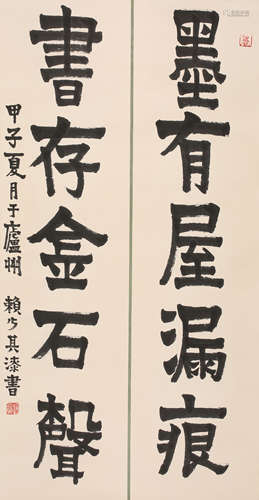 墨有屋漏痕
書存金石聲
甲子夏月于廬州 賴少其漆書